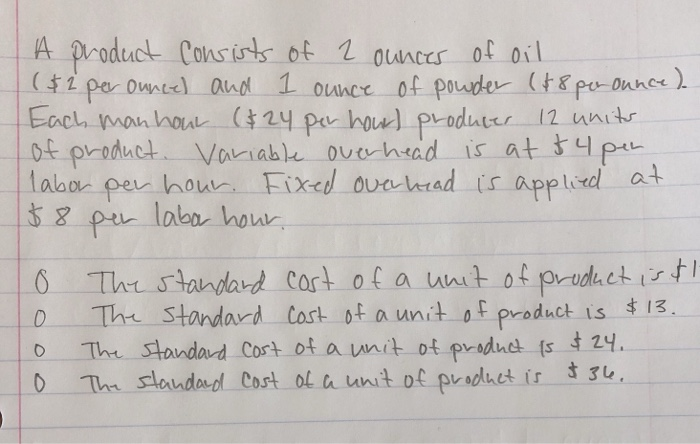 A product Consists of 2 ounces of oil
($2 per ounce) and 1 ounce of powder ($8 per ounce).
Each man hour ($24 per hour) produces 12 units
of product. Variable overhead is at $4 per
labor per hour. Fixed overhead is applied at
$8 per labor hour.
O The standard cost of a unit of product is $1
O The Standard Cost of a unit of product is $13.
O The Standard Cost of a unit of product is $24.
O The Standard Cost of a unit of product is $36.